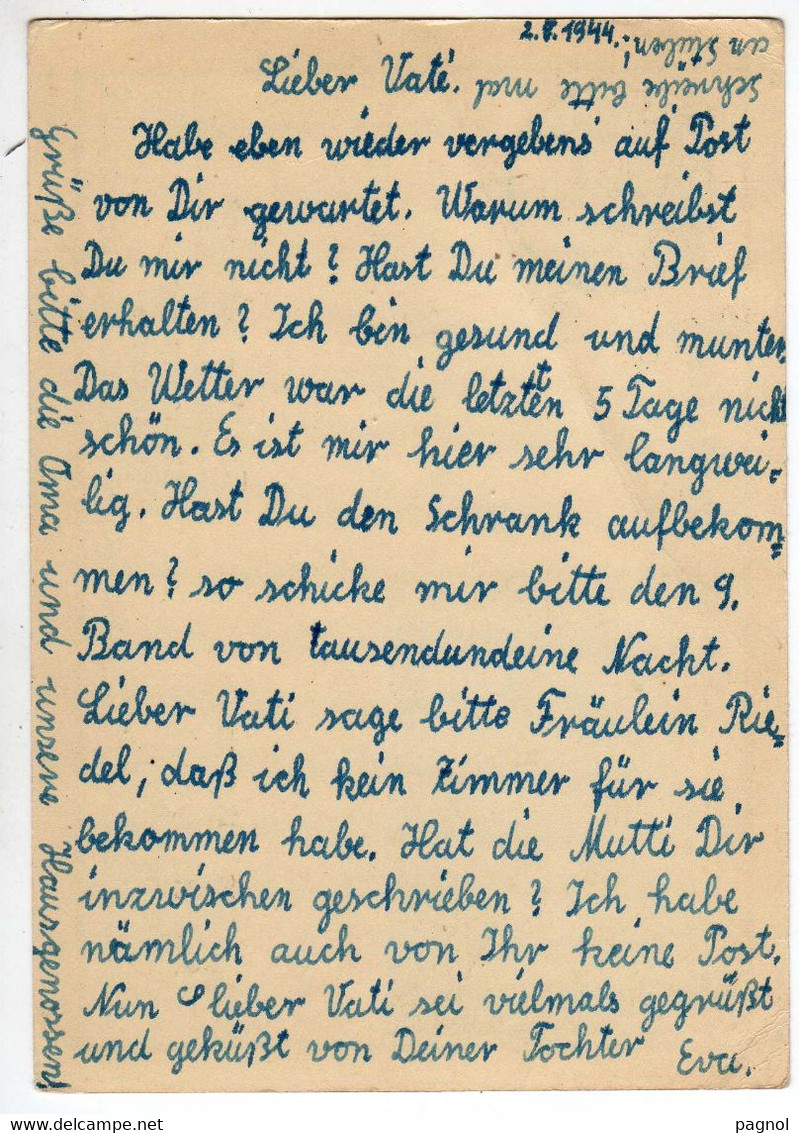 2.8.1944.
Lieber Vati.
Habe eben wieder vergebens auf Post
von Dir gewartet. Warum schreibst
Du mir nicht? Hast Du meinen Brief
erhalten? Ich bin gesund und munter.
Das Wetter war die letzten 5 Tage nicht
schön. Es ist mir hier sehr langwei=
lig. Hast Du den Schrank aufbekom=
men? so schicke mir bitte den 9.
Band von tausendundeine Nacht.
Lieber Vati sage bitte Fräulein Rie=
del, daß ich kein Zimmer für sie
bekommen habe. Hat die Mutti Dir
inzwischen geschrieben? Ich habe
nämlich auch von Ihr keine Post.
Nun lieber Vati sei vielmals gegrüßt
und geküßt von Deiner Tochter Eva.
Grüße bitte die Oma und unsere Hausgenossen!
Schreibe bitte mal
an
pagnol